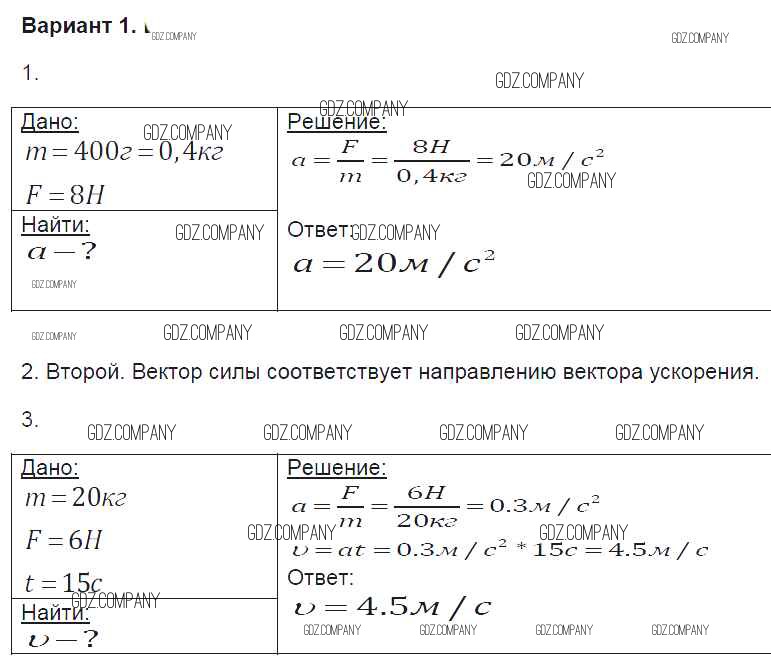 Вариант 1.
GDZ.COMPANY
GDZ.COMPANY
1.
GDZ.COMPANY
Дано:
GDZ.COMPANY
m = 400г = 0,4кг
F = 8H
Найти:
GDZ.COMPANY
a – ?
GDZ.COMPANY
GDZ.COMPANY
Решение:
a = F/m = 8H/0,4кг = 20м / с²
GDZ.COMPANY
Ответ:
GDZ.COMPANY
a = 20м / с²
GDZ.COMPANY GDZ.COMPANY GDZ.COMPANY GDZ.COMPANY
2. Второй. Вектор силы соответствует направлению вектора ускорения.
3.
GDZ.COMPANY GDZ.COMPANY GDZ.COMPANY GDZ.COMPANY
Дано:
m = 20кг
F = 6H
t = 15с
GDZ.COMPANY
Найти:
υ – ?
Решение:
a = F/m = 6H/20кг = 0.3м / с²
GDZ.COMPANY GDZ.COMPANY
υ = at = 0.3м / с² * 15с = 4.5м / с
Ответ:
υ = 4.5м / с
GDZ.COMPANY GDZ.COMPANY GDZ.COMPANY GDZ.COMPANY